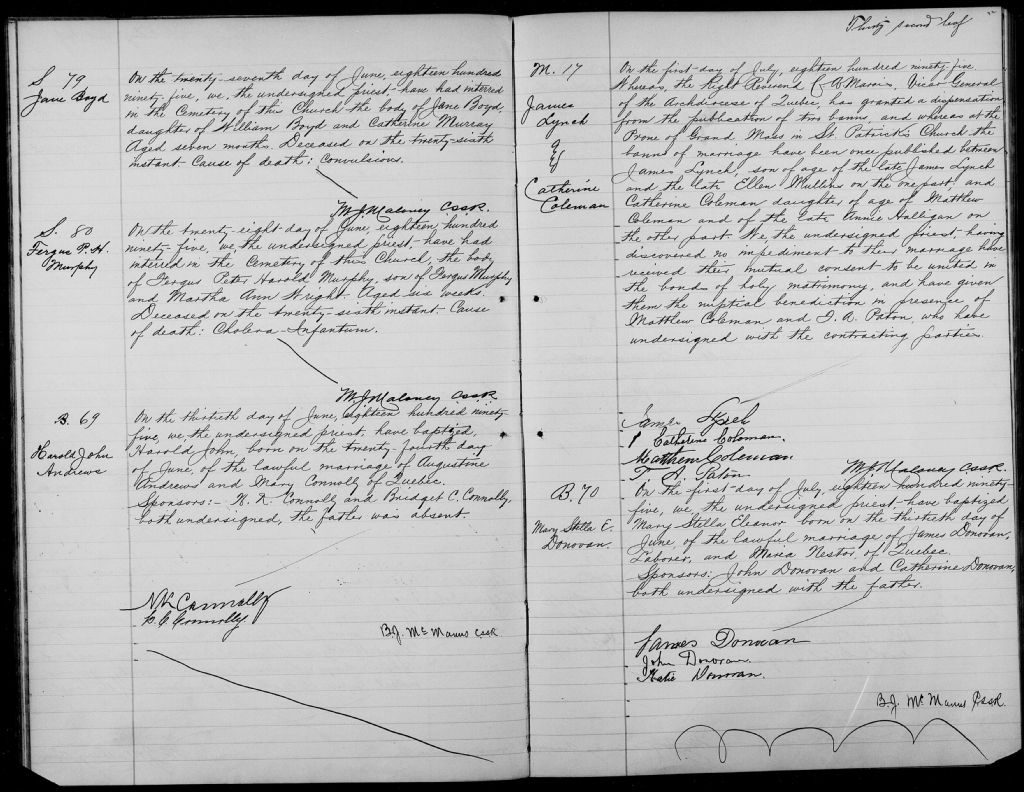 S. 79
Jane Boyd
On the twenty-seventh day of June, eighteen hundred
ninety five, we, the undersigned priest, have had interred
in the Cemetery of this Church the body of Jane Boyd,
daughter of William Boyd and Catherine Murray
Aged seven months. Deceased on the twenty-sixth
instant- Cause of death: Convulsions.
M J Maloney CSSR.
S. 80
Fergus P. H.
Murphy
On the twenty-eight day of June, eighteen hundred
ninety-five, we the undersigned priest- have had
interred in the Cemetery of this Church, the body
of Fergus Peter Harold Murphy, son of Fergus Murphy
and Martha Ann Wright. Aged six weeks.
Deceased on the twenty-sixth instant- Cause
of death: Cholera-Infantum.
M J Maloney CSSR
B. 69
Harold John
Andrews
On the thirtieth day of June, eighteen hundred ninety-
five, we the undersigned priest, have baptized,
Harold John, born on the twenty-fourth day
of June, of the lawful marriage of Augustine
Andrews and Mary Connolly of Quebec.
Sponsors:- N. K. Connolly and Bridget C. Connolly,
both undersigned, the father was absent.
N K Connolly
B. C Connolly.
B.J. McManus CSSR
Thirty second leaf
M. 17
James
Lynch
&
Catherine
Coleman
On the first day of July, eighteen hundred ninety five
Whereas, the Right Reverend C A Marois, Vicar General
of the Archdiocese of Quebec, has granted a dispensation
from the publication of two banns, and whereas at the
Prone of Grand Mass in St. Patrick's Church the
banns of marriage have been once published between
James Lynch, son of age of the late James Lynch
and the late Ellen Mullins on the one part: and
Catherine Coleman daughter of age of Matthew
Coleman and of the late Annie Nulligan on
the other part. We, the undersigned priest- having
discovered no impediment to their marriage have
received their mutual consent to be united in
the bonds of holy matrimony, and have given
them the nuptial benediction in presence of
Matthew Coleman and T. A. Paton, who have
undersigned with the contracting parties.
James Lynch
Catherine Coleman.
Matthew Coleman
T. A. Paton
M J Maloney CSSR.
B. 70
Mary Stella E.
Donovan.
On the first day of July, eighteen hundred ninety-
five, we, the undersigned priest- have baptized
Mary Stella Eleanor born on the thirtieth day of
June of the lawful marriage of James Donovan,
Laborer, and Maria Nestor, of Quebec
Sponsors: John Donovan and Catherine Donovan,
both undersigned with the father.
James Donovan
John Donovan.
Katie Donovan.
B.J. McManus CSSR.